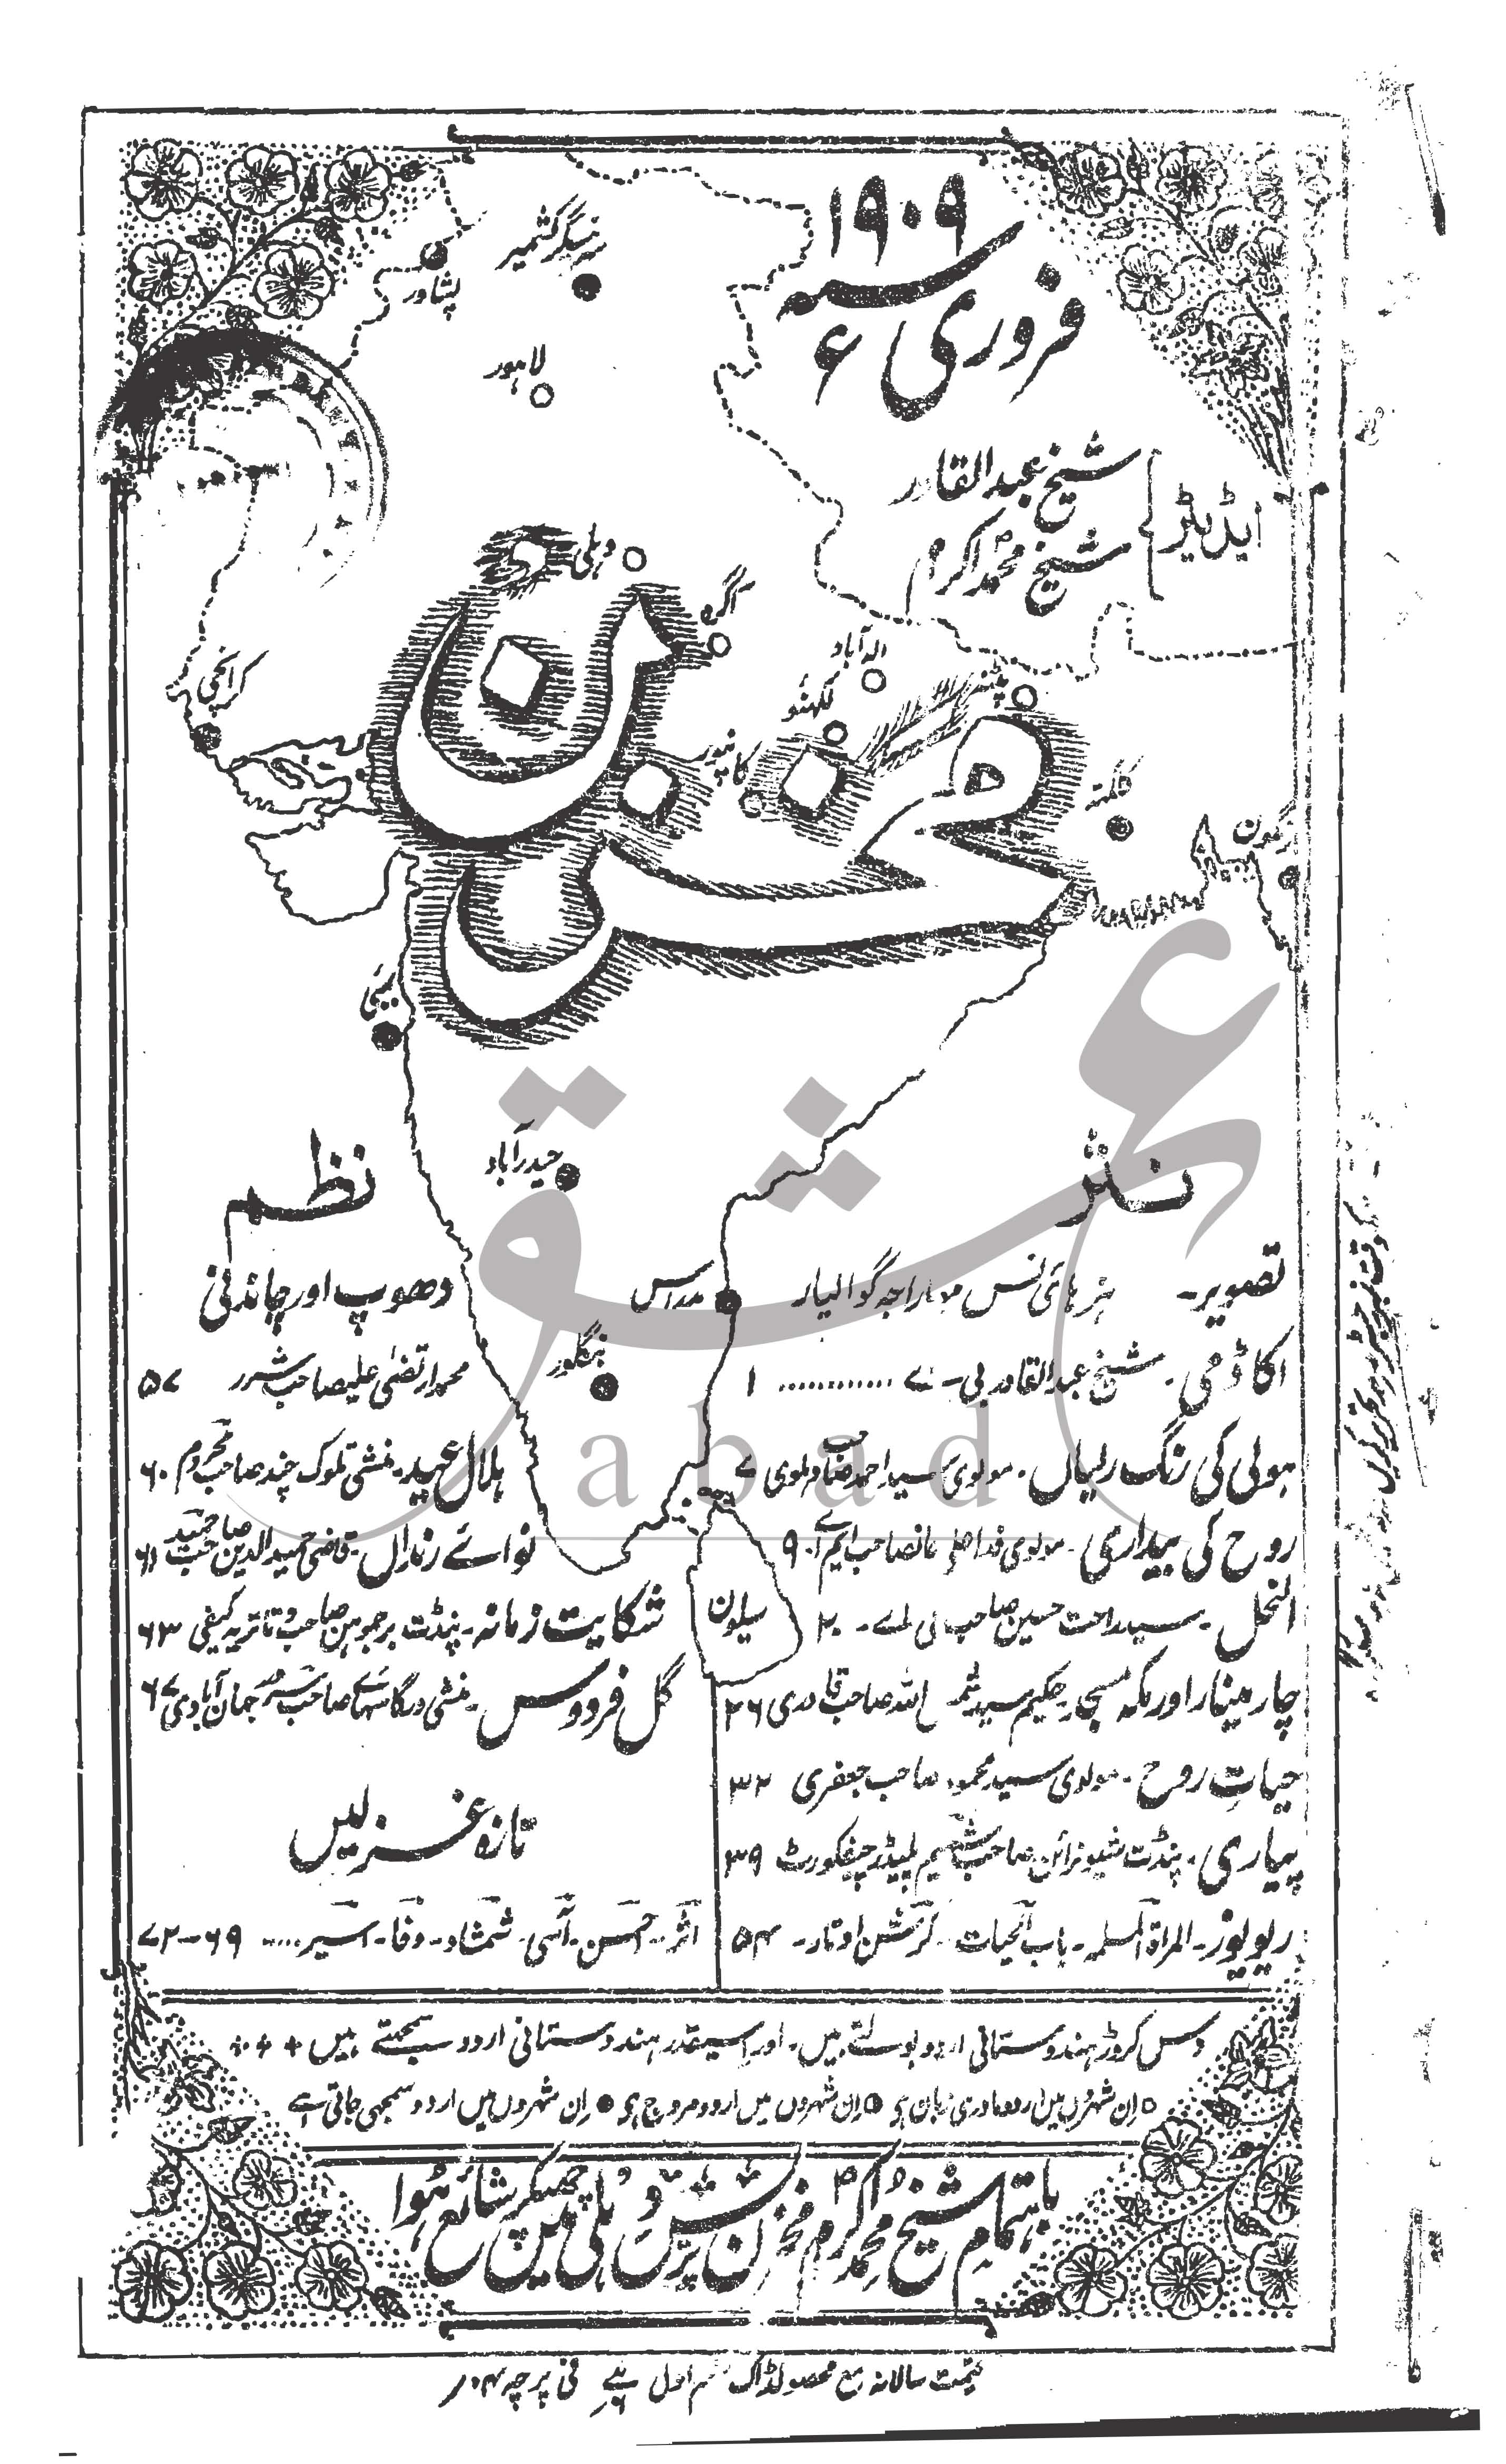 سنہ ۱۹۰۹ء
فروری
ایڈیٹر
شیخ عبدالقادر
شیخ محمد اکرم
مخزن
سرینگر کشمیر
پشاور
لاہور
دہلی
آگرہ
الہ آباد
لکھنؤ
پٹنہ
کانپور
کرانچی
کلکتہ
رنگون
بمبئی
حیدرآباد
مدراس
بنگلور
سیلون
نثر
تصویر۔ ہز ہائی نس مہاراجہ گوالیار
اکاڈمی۔ شیخ عبدالقادر بی۔ اے ............ ۱
ہولی کی رنگ رلیاں۔ مولوی سید احمد صاحب دہلوی ۷
روح کی بیداری۔ مولوی فدا علی خانصاحب ایم اے ۹
النحل۔ سید راحت حسین صاحب بی اے۔ ۲۰
چار مینار اور مکہ مسجد۔ حکیم سید شمس اللہ صاحب قادری ۲۶
حیات روح۔ مولوی سید محمود صاحب جعفری ۳۲
پیاری۔ پنڈت شیو نرائن صاحب شمیم پلیڈر چیفکورٹ ۳۹
ریویوز۔ المراۃ المسلمہ۔ باب الحیات۔ کرشن اوتار۔ ۵۴
نظم
دھوپ اور چاندنی
محمد ارتضیٰ علیصاحب شرر ۵۷
ہلال عید۔ منشی تلوک چند صاحب محروم ۶۰
نوائے زنار ال۔ قاضی حمید الدین صاحب حمید ۶۱
شکایت زمانہ۔ پنڈت برجموہن صاحب دتاتریہ کیفی ۶۳
گل فردوس۔ منشی درگا سہائے صاحب سرور جہان آبادی ۶۷
تازہ غزلیں
اثر۔ احسن۔ آسی۔ شمشاد۔ وفا۔ اسیر ..... ۶۹–۷۲
دس کروڑ ہندوستانی اردو بولتے ہیں۔ اور اسیقدر ہندوستانی اردو سمجھتے ہیں
○ ان شہروں میں اردو مادری زبان ہے ◐ ان شہروں میں اردو مروج ہے ● ان شہروں میں اردو سمجھی جاتی ہے
باہتمام شیخ محمد اکرم مخزن پریس دہلی میں چھپکر شائع ہوا
قیمت سالانہ مع محصولڈاک قسم اول فی پرچہ ۴؍
عشق
abad